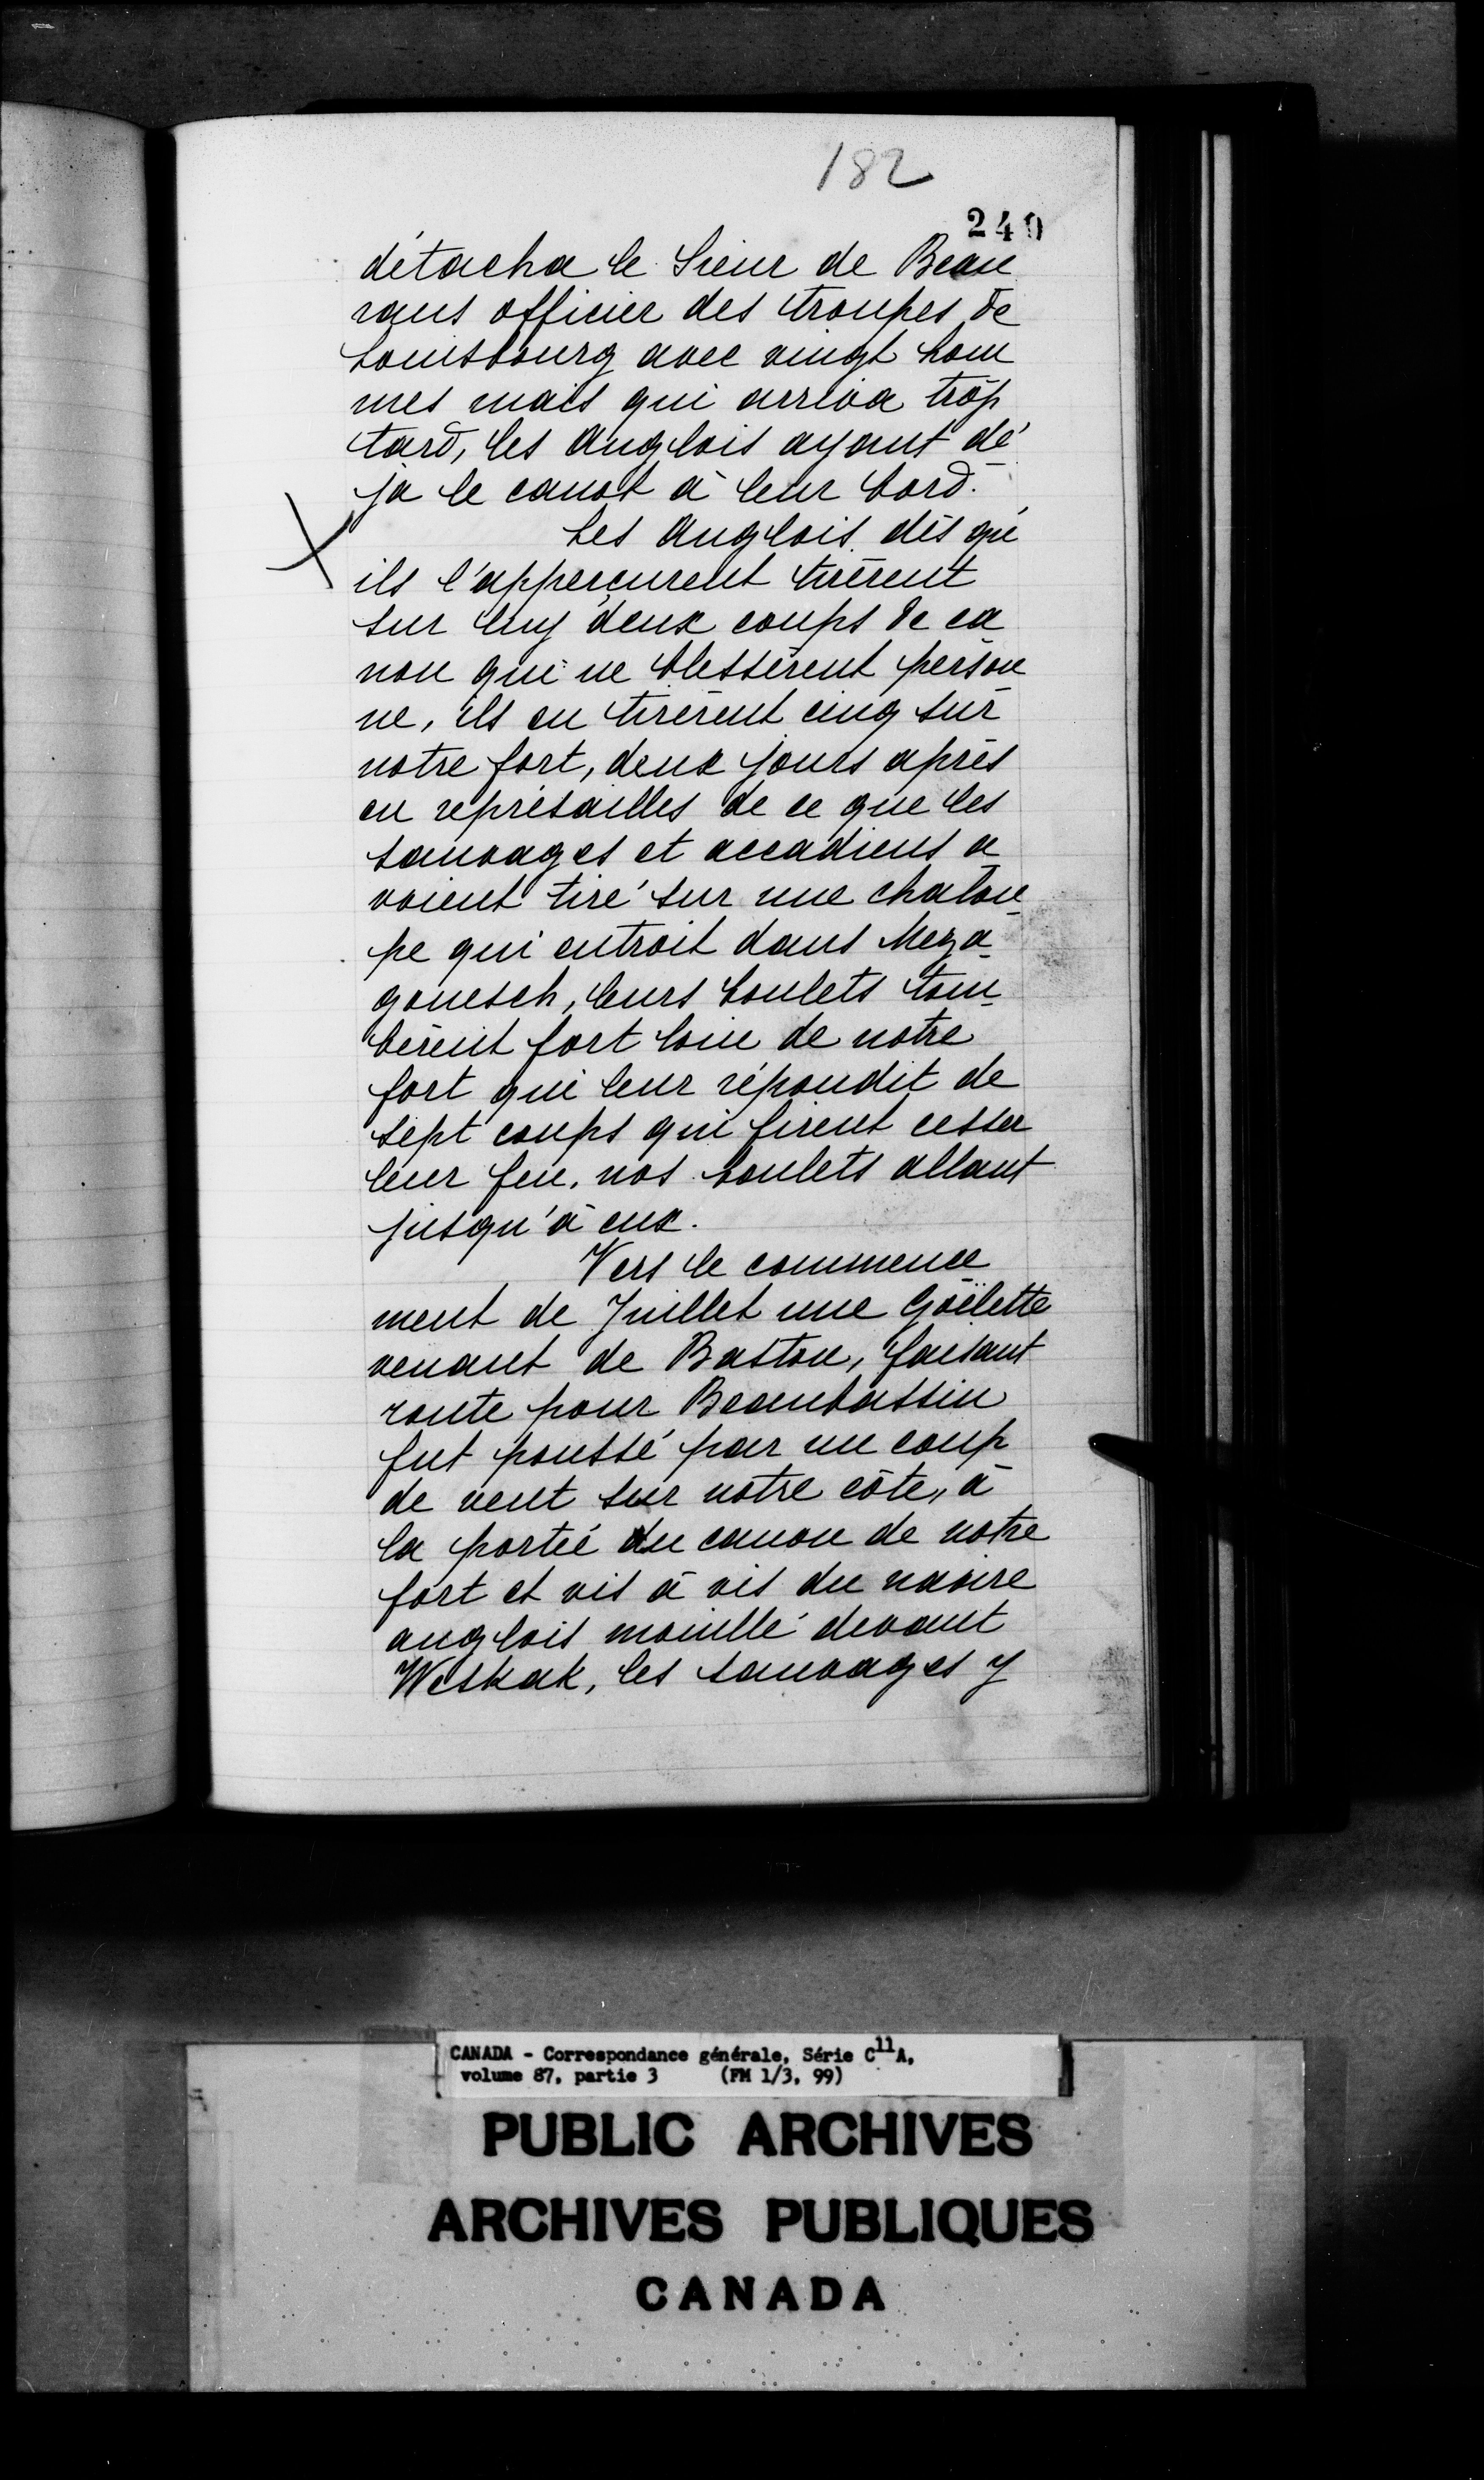 182
240
détacha le Sieur de Beau
rans officier des troupes de
Louisbourg avec vingt hom
mes mais qui arriva trop
tard, les Anglois ayant dé
ja le canot à leur bord.
Les Anglois dès qu'
ils l'apperçurent tirèrent
sur luy deux coups de ca
non qui ne blessèrent person
ne, ils en tirèrent cinq sur
notre fort, deux jours après
en représailles de ce que les
sauvages et accadiens a
voient tiré sur une chalou
pe qui entroit dans Meza
gouesch, leurs boulets tom
bèrent fort loin de notre
fort qui leur répondit de
sept coups qui firent cesser
leur feu, nos boulets allant
jusqu'à eux.
Vers le commence
ment de Juillet une Goëlette
venant de Baston, faisant
route pour Beaubassin
fut poussé par un coup
de vent sur notre côte, à
la porteé du canon de notre
fort et vis à vis du navire
anglois mouillé devant
Weskak, les sauvages y
CANADA - Correspondance générale, Série C11A,
volume 87, partie 3 (FM 1/3, 99)
PUBLIC ARCHIVES
ARCHIVES PUBLIQUES
CANADA